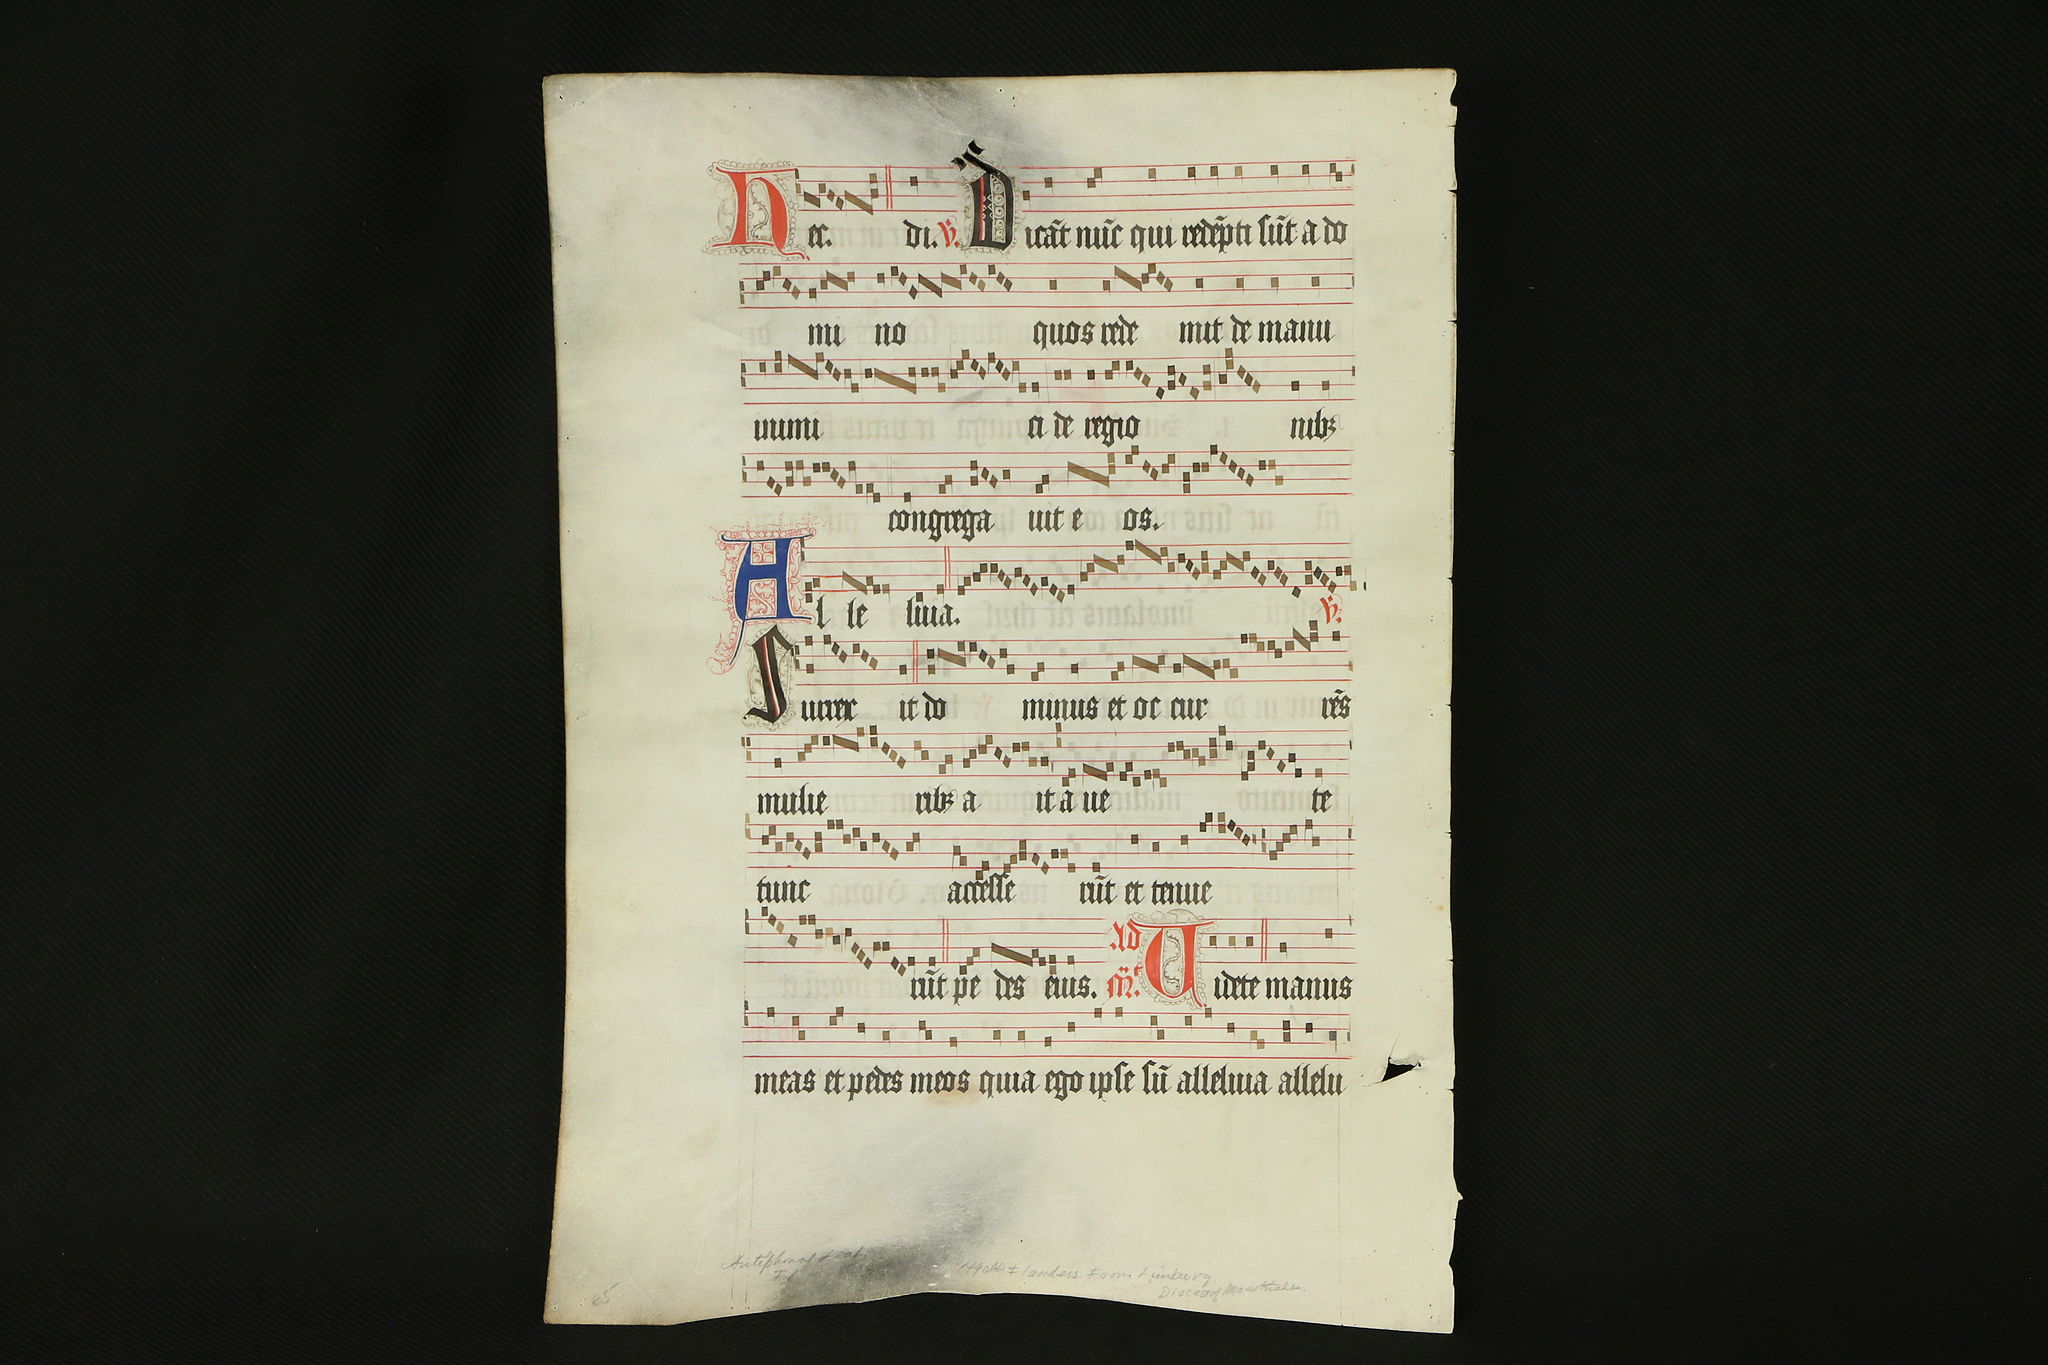 Hec. di. V. Dicãt nũc qui redẽpti sũt a do
mi no quos rede mit de manu
inimi ci de regio nibꝫ
congrega uit e os.
Al le luia. V.
Surrex it do minus et oc cur rẽs
mulie ribꝫ a it a ue te
tunc accesse rũt et tenue
rũt pe des eius. Ad Uidete manus
meas et pedes meos quia ego ipse sũ alleluia allelu
Antiphonal Leaf
Flanders. From Limburg
Diocese of Maastricht.